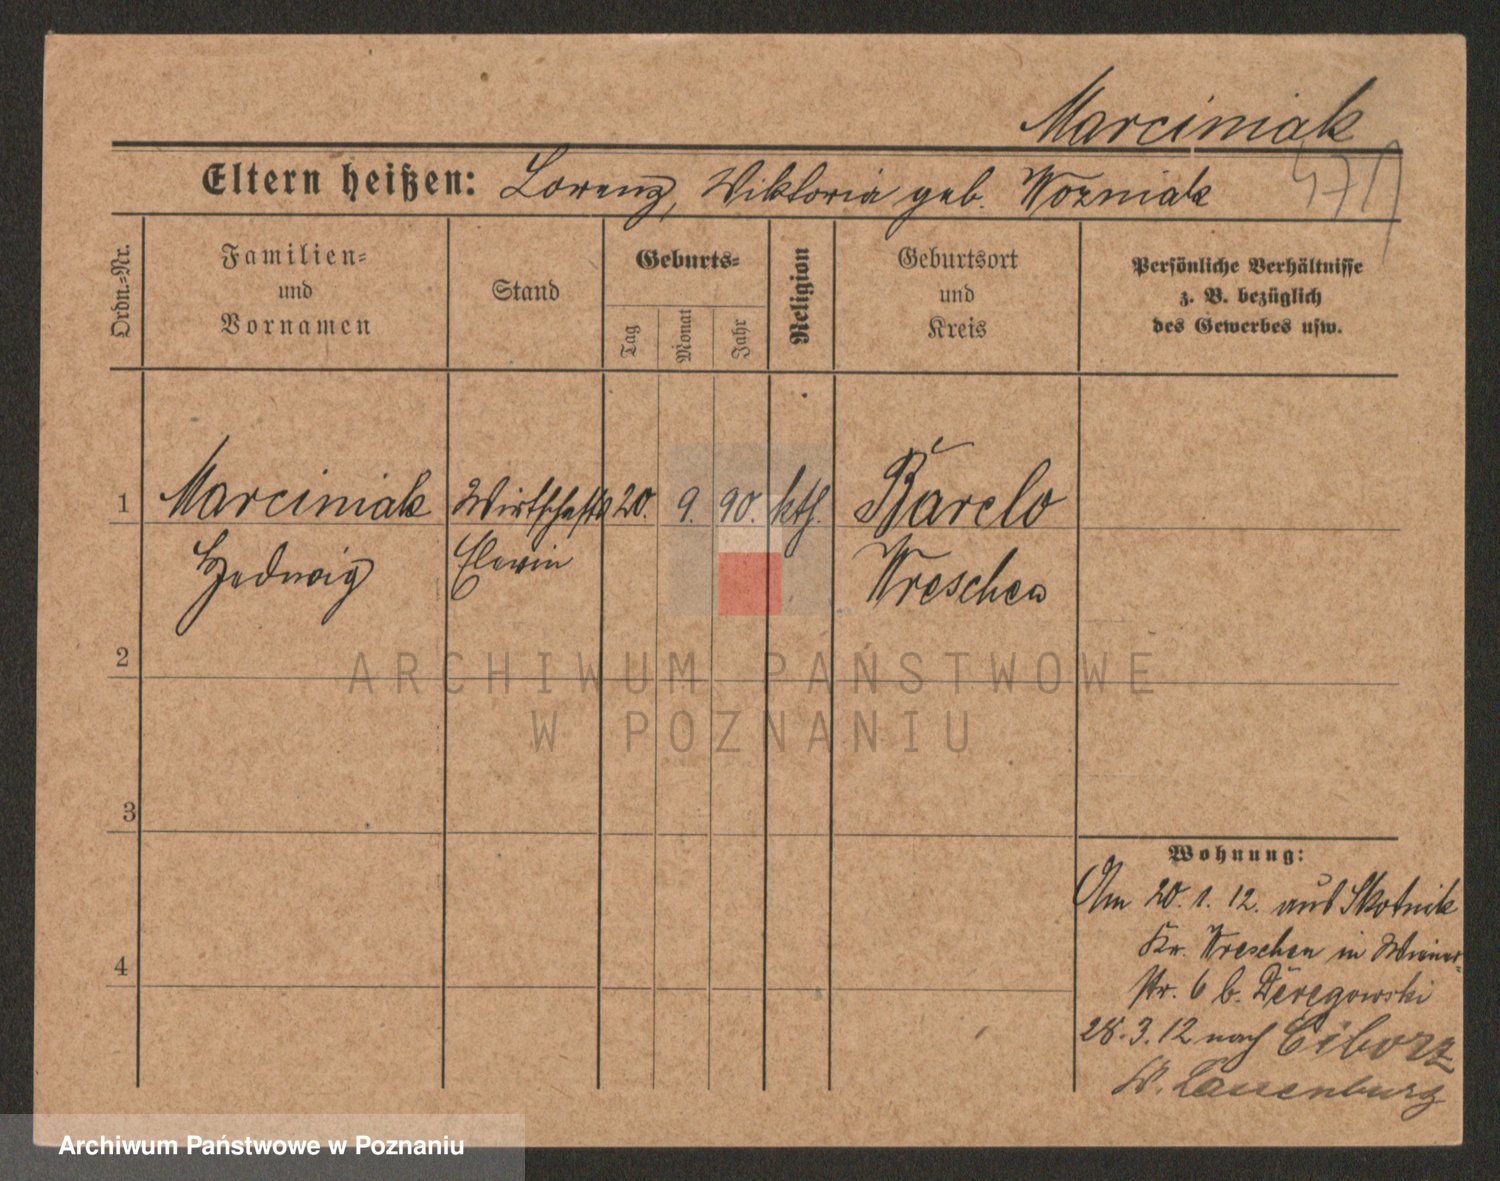 Marciniak
Eltern heißen: Lorenz, Wiktoria geb. Wozniak
Ordn.-Nr.
Familien-
und
Vornamen
Stand
Geburts-
Tag
Monat
Jahr
Religion
Geburtsort
und
Kreis
Persönliche Verhältnisse
z. B. bezüglich
des Gewerbes usw.
1 Marciniak Wirtschafts 20. 9. 90. kth. Barclo
Hedwig Elevin Wreschen
2
ARCHIWUM PAŃSTWOWE
W POZNANIU
3
Wohnung:
Am 20. 1. 12. aus Skotnik
4
Kr. Wreschen in Wiener-
str. 6 b. Deręgowski
28. 3. 12 nach Ciborz
Kr. Lauenburg
Archiwum Państwowe w Poznaniu